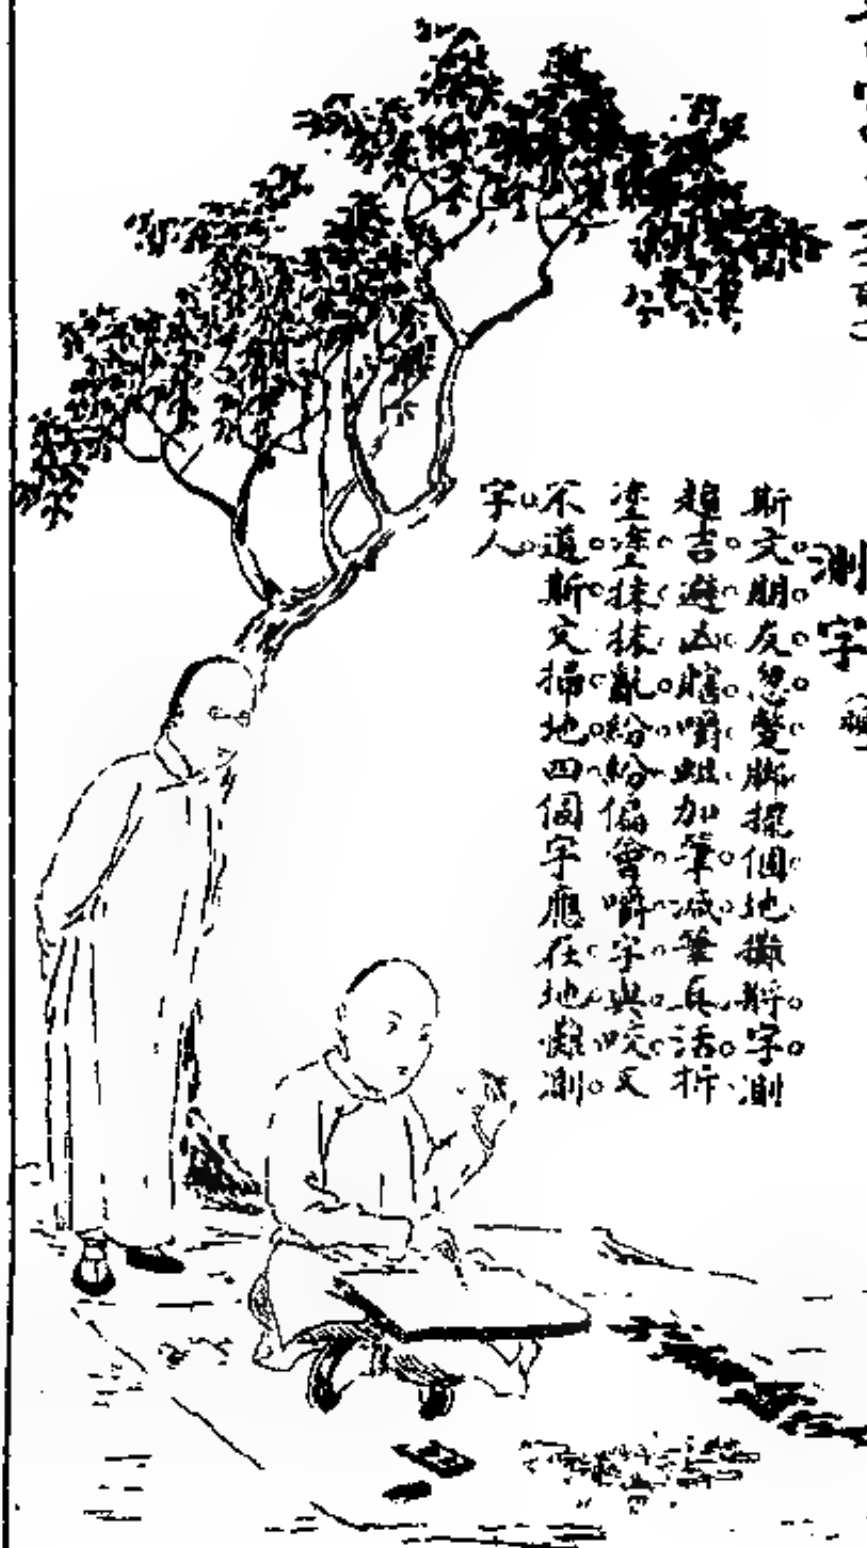 測字
斯文朋友忽蹩脚擺個地攤將字測
趨吉避凶瞎嚼蛆加筆減筆真活拆
塗塗抹抹亂紛紛偏會嚼字與咬文
不道斯文掃地四個字應在地攤測
字人